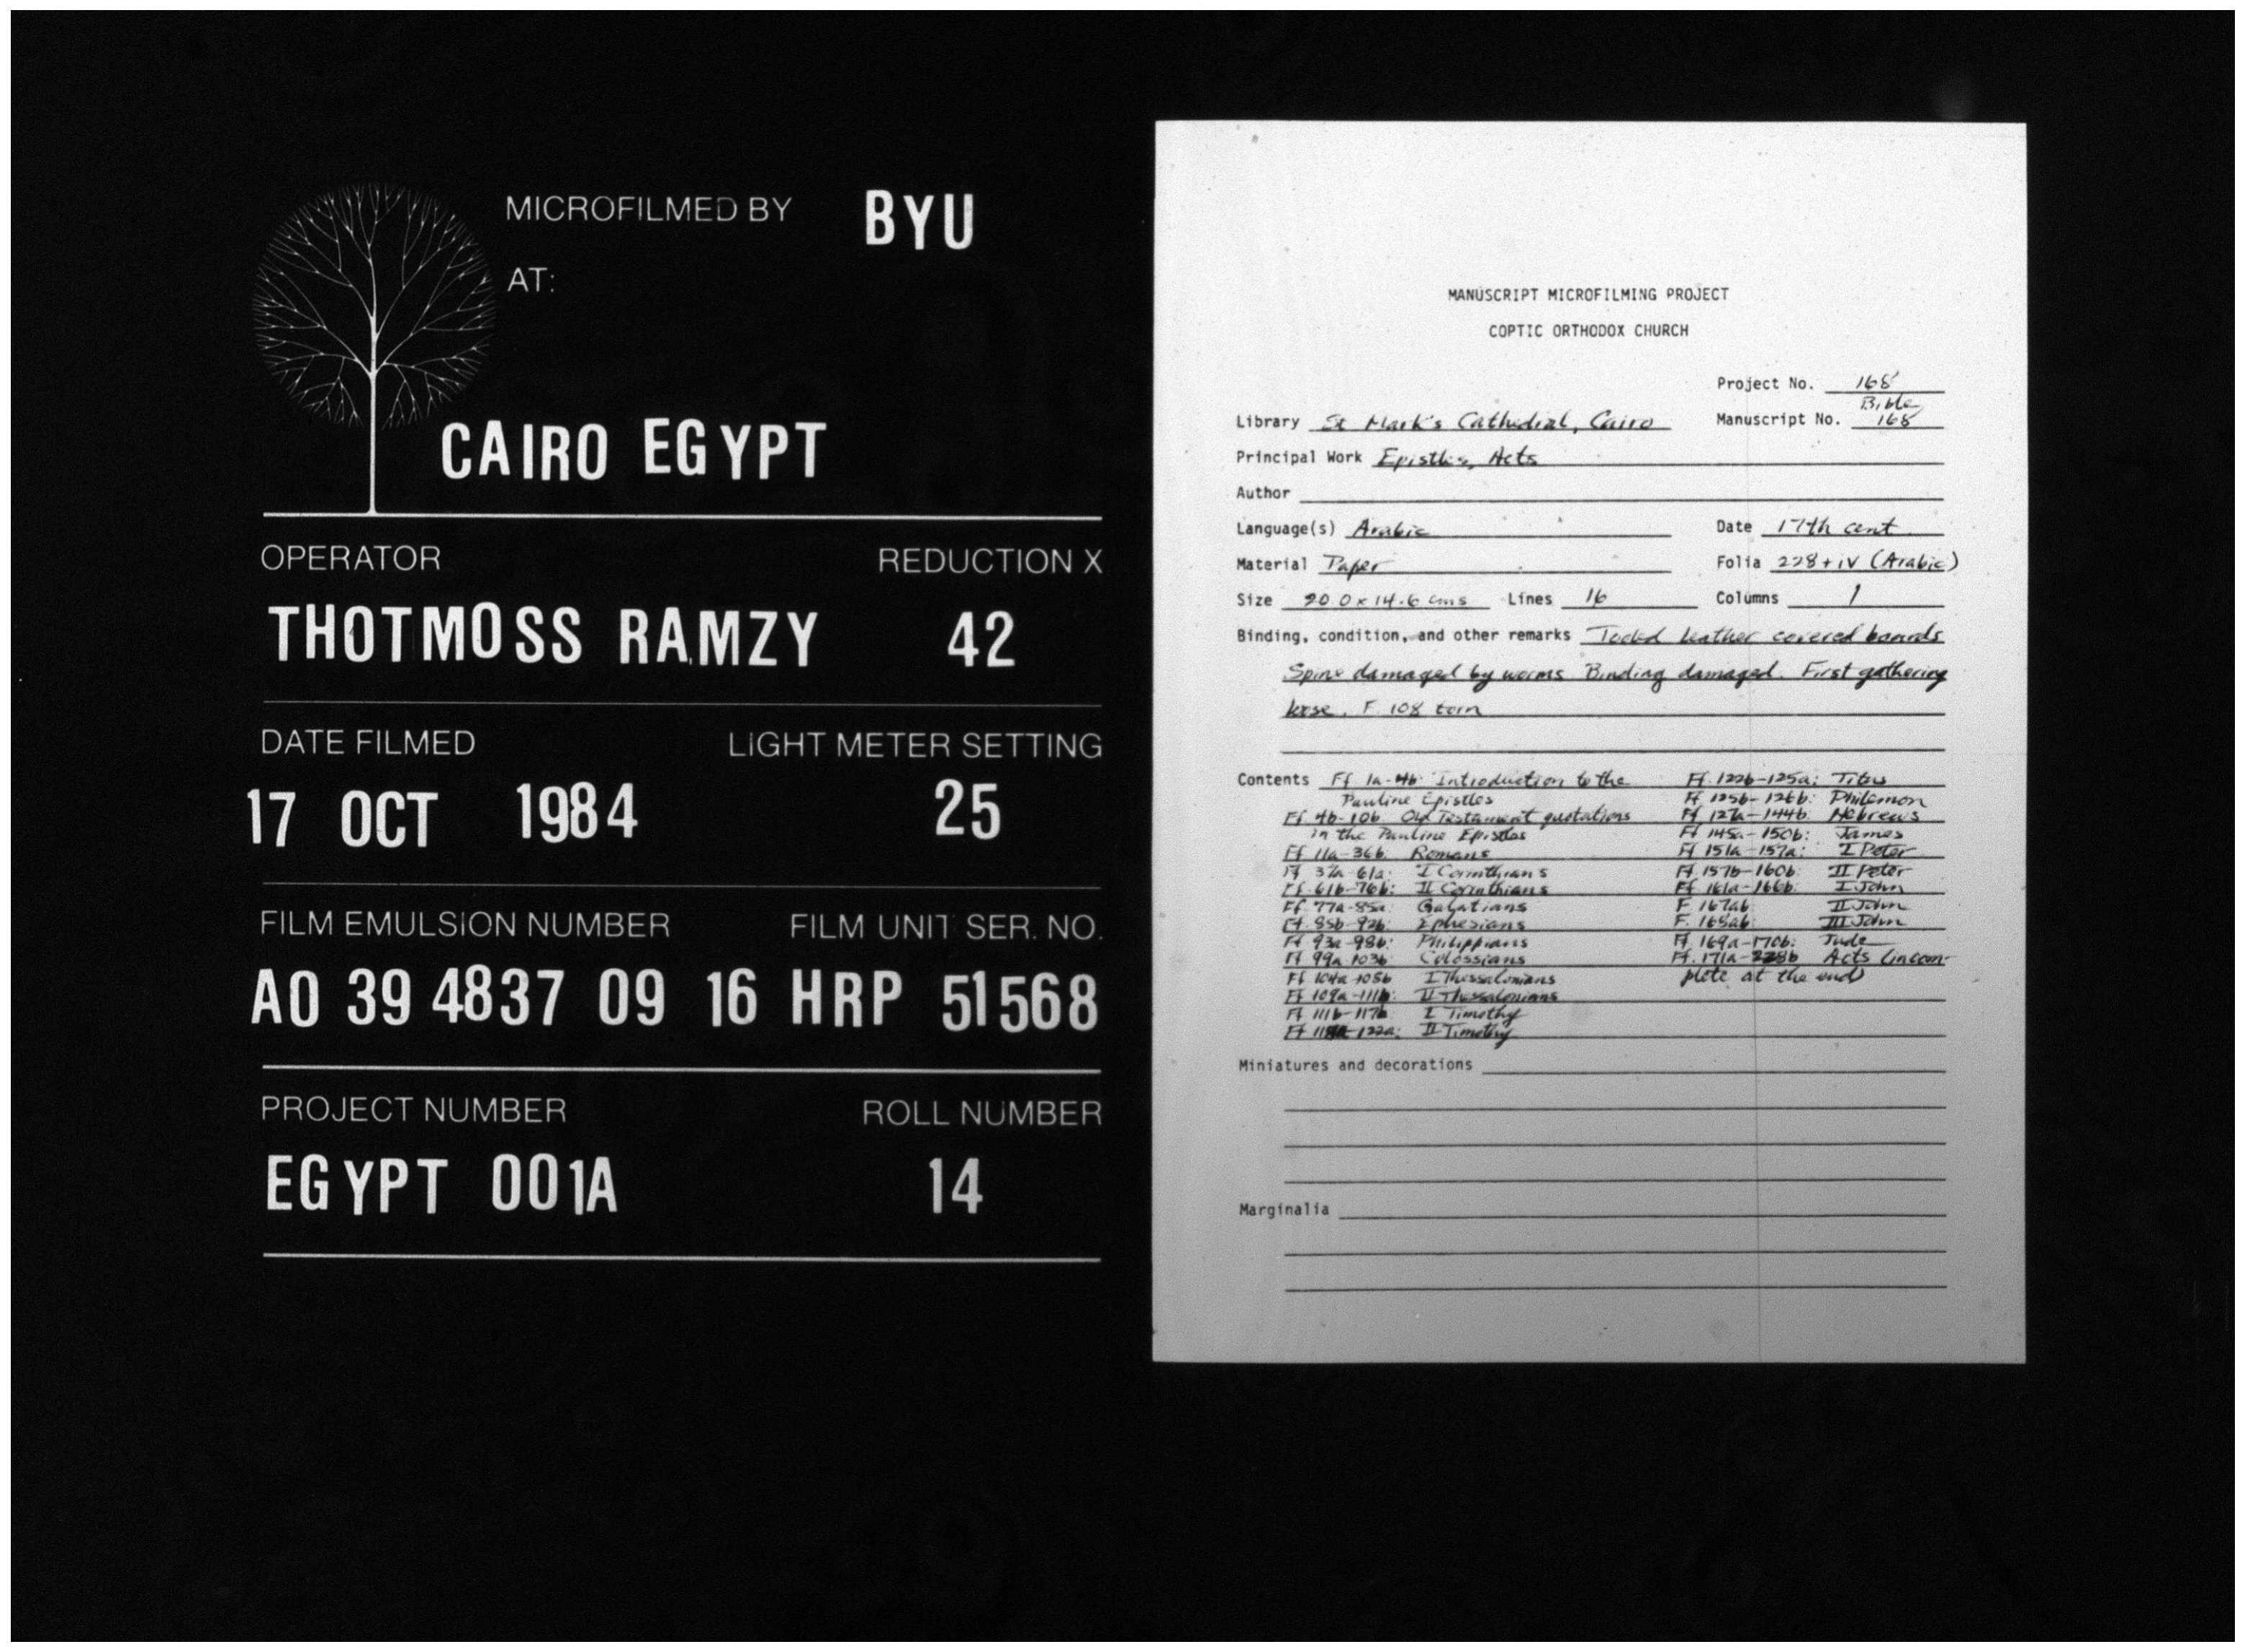 MICROFILMED BY BYU
AT:
CAIRO EGYPT
OPERATOR REDUCTION X
THOTMOSS RAMZY 42
DATE FILMED LIGHT METER SETTING
17 OCT 1984 25
FILM EMULSION NUMBER FILM UNIT SER. NO.
A0 39 4837 09 16 HRP 51568
PROJECT NUMBER ROLL NUMBER
EGYPT 001A 14
MANUSCRIPT MICROFILMING PROJECT
COPTIC ORTHODOX CHURCH
Project No. 168
Bible
Library St Mark's Cathedral, Cairo Manuscript No. 168
Principal Work Epistles, Acts
Author
Language(s) Arabic Date 17th cent
Material Paper Folia 228 + iv (Arabic)
Size 20.0 x 14.6 cms Lines 16 Columns 1
Binding, condition, and other remarks Tooled leather covered boards
Spine damaged by worms Binding damaged. First gathering
loose. F. 108 torn
Contents Ff 1a-4b Introduction to the
Pauline Epistles
Ff 4b-10b Old Testament quotations
in the Pauline Epistles
Ff 11a-36b: Romans
Ff 37a-61a: I Corinthians
Ff. 61b-76b: II Corinthians
Ff. 77a-85a: Galatians
Ff. 85b-92b: Ephesians
Ff 93a-98b: Philippians
Ff 99a-103b: Colossians
Ff 104a-108b I Thessalonians
Ff 109a-111b: II Thessalonians
Ff 111b-117b I Timothy
Ff 122a: II Timothy
Ff. 122b-125a: Titus
Ff 125b-126b: Philemon
Ff 127a-144b: Hebrews
Ff 145a-150b: James
Ff 151a-157a: I Peter
Ff 157b-160b: II Peter
Ff 161a-166b: I John
F 167ab: II John
F. 168ab: III John
Ff. 169a-170b: Jude
Ff. 171a-228b Acts (incom-
plete at the end)
Miniatures and decorations
Marginalia